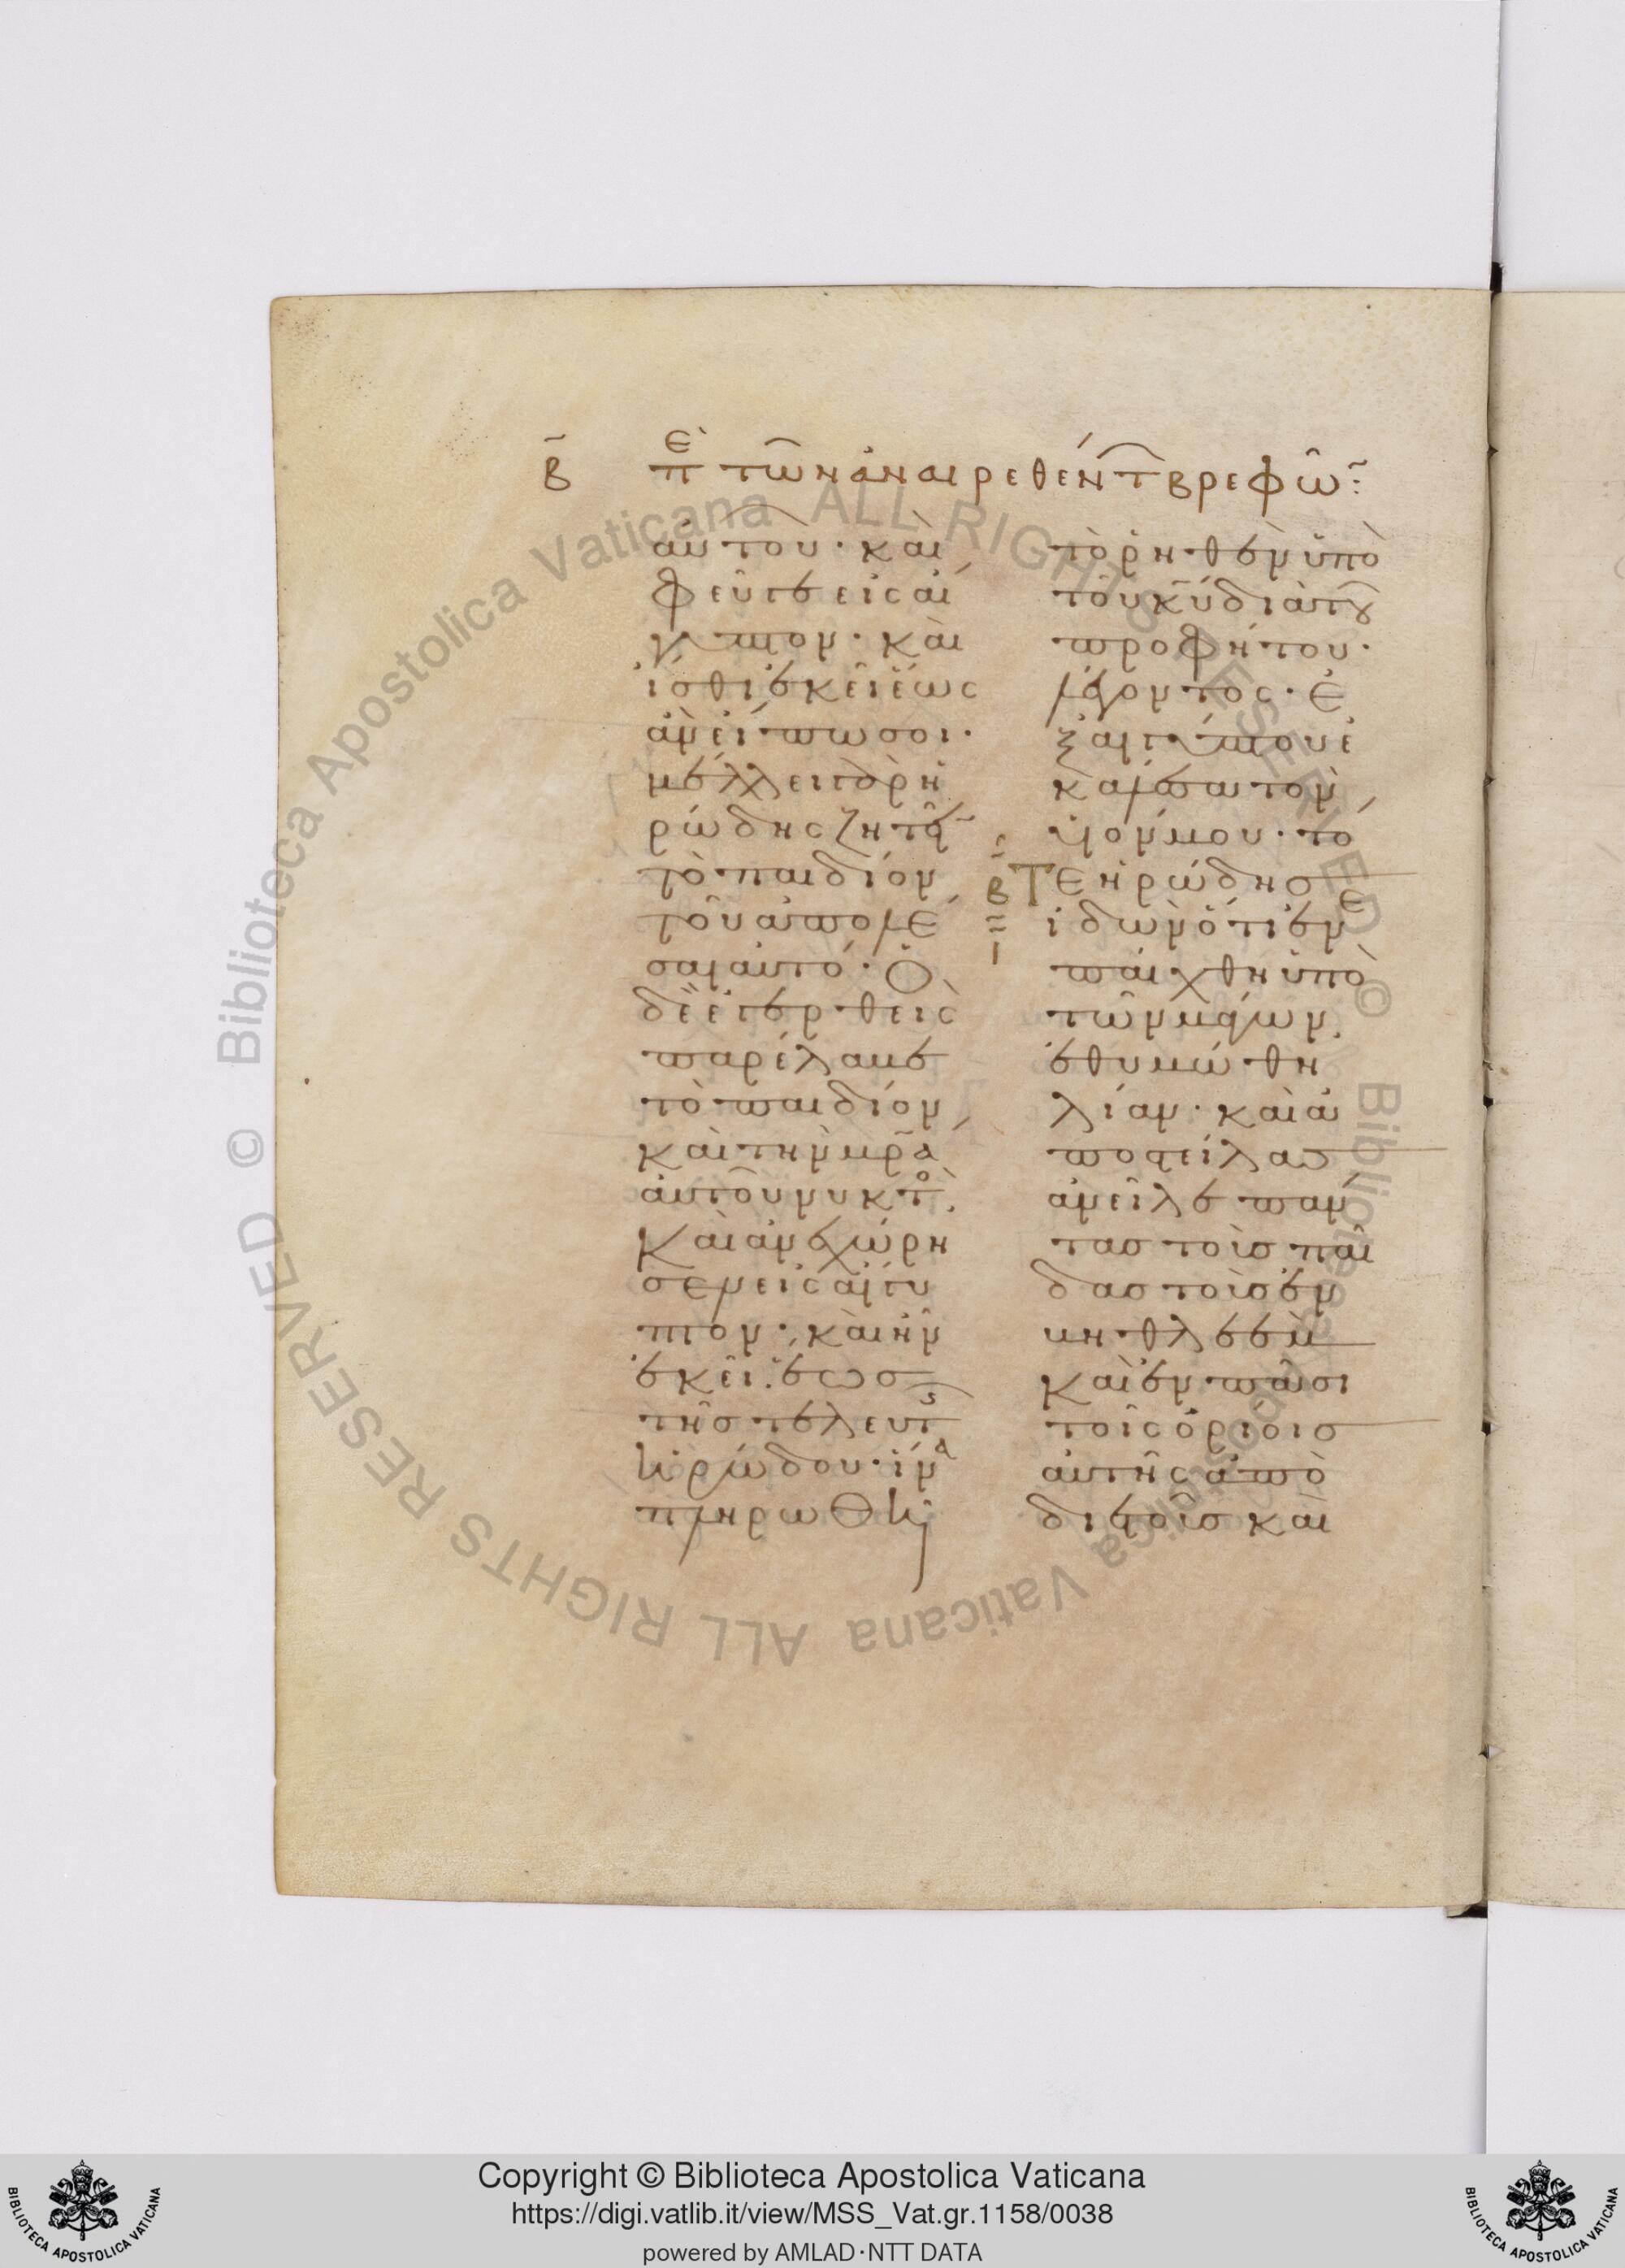 β̄ πὲ τῶν ἀναιρεθέντ βρεφῶ:
αὐτοῦ· καὶ
φεῦγε εἰς αἴ
γυπτον· καὶ
ἴσθι ἐκεῖ ἕως
ἂν εἴπω σοι·
μέλλει γὰρ ἡ
ρώδης ζητεῖ
τὸ παιδίον
τοῦ ἀπολέ
σαι αὐτό· Ὁ
δὲ ἐγερθεὶς
παρέλαβε
τὸ παιδίον
καὶ τὴν μρ̄α
αὐτοῦ νυκτὸ
Καὶ ἀνεχώρη
σεν εἰς αἴγυ
πτον· καὶ ἦν
ἐκεῖ ἕως
τῆς τελευτ
ἡρώδου· ἵνα
πληρωθῇ
τὸ ῥηθὲν ὑπὸ
τοῦ κῡ διὰ τοῦ
προφήτου
λέγοντος· Ἐ
ξ αἰγύπτου ἐ
κάλεσα τὸν
υἱόν μου· τό
β̄ ι ΤΕ ἡρώδησ
ἰδὼν ὅτι ἐνε
παίχθη ὑπὸ
τῶν μάγων
ἐθυμώθη
λίαν· καὶ ἀ
ποστείλασ
ἀνεῖλε πάν
τασ τοὺσ παῖ
δασ τοὺσ ἐν
βηθλεὲμ
καὶ ἐν πᾶσι
τοῖς ὁρίοισ
αὐτῆς ἀπὸ
διετοῦσ καὶ
Copyright © Biblioteca Apostolica Vaticana
https://digi.vatlib.it/view/MSS_Vat.gr.1158/0038
powered by AMLAD·NTT DATA
BIBLIOTECA APOSTOLICA VATICANA
BIBLIOTECA APOSTOLICA VATICANA
© Biblioteca Apostolica Vaticana ALL RIGHTS RESERVED © Biblioteca Apostolica Vaticana ALL RIGHTS RESERVED